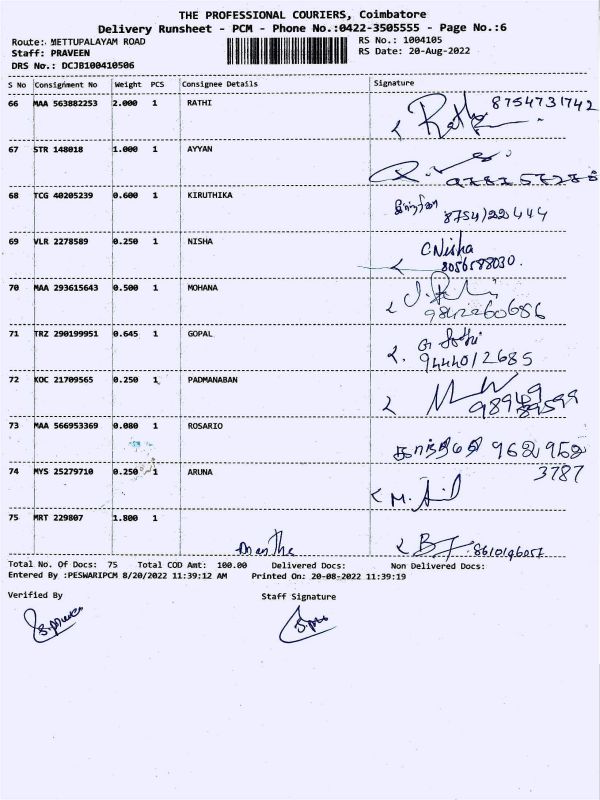 THE PROFESSIONAL COURIERS, Coimbatore
Delivery Runsheet - PCM - Phone No.:0422-3505555 - Page No.:6
Route: METTUPALAYAM ROAD
Staff: PRAVEEN
DRS No.: DCJB100410506
RS No.: 1004105
RS Date: 20-Aug-2022
S No Consignment No Weight PCS Consignee Details Signature
66 MAA 563882253 2.000 1 RATHI 8754731742
67 STR 148018 1.000 1 AYYAN
68 TCG 40205239 0.600 1 KIRUTHIKA
8754122444
69 VLR 2278589 0.250 1 NISHA C Nisha
8056588030.
70 MAA 293615643 0.500 1 MOHANA
71 TRZ 290199951 0.645 1 GOPAL
9444012685
72 KOC 21709565 0.250 1 PADMANABAN
73 MAA 566953369 0.080 1 ROSARIO
3787
74 MYS 25279710 0.250 1 ARUNA
75 MRT 229807 1.800 1
Total No. Of Docs: 75 Total COD Amt: 100.00 Delivered Docs: Non Delivered Docs:
Entered By :PESWARIPCM 8/20/2022 11:39:12 AM Printed On: 20-08-2022 11:39:19
Verified By Staff Signature